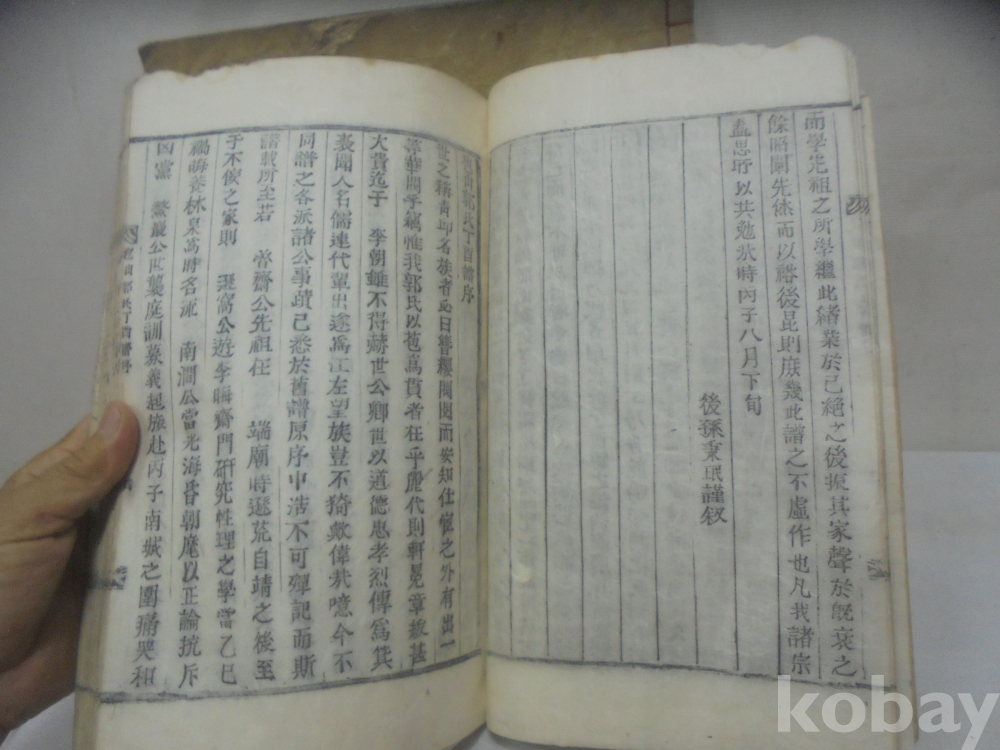 而學先祖之所學繼此緖業於已絕之後振其家聲於旣衰之
餘昭闡先休而以裕後昆則庶幾此譜之不虛作也凡我諸宗
盍思所以共勉於時丙子八月下旬
後孫秉珉謹叙
郭氏丁酉譜序
世之稱靑邱名族者必曰簪纓閥閱而安知仕宦之外有出一
等華閥乎竊惟我郭氏以苞爲貫者在乎麗代則軒冕章紱甚
大貴迄于 李朝雖不得赫世公卿世以道德忠孝烈傳爲箕
裘聞人名儒連代輩出遂爲江左望族豈不猗歟偉哉噫今不
同譜之各派諸公事蹟已悉於舊譜原序中浩不可殫記而斯
譜載所至若 齋公先祖在 端廟時遯荒自靖之後至
于不佞之家則 窩公遊李晦齋門硏究性理之學當乙巳
禍晦養林泉爲時名流 南澗公當光海昏朝廢以正論抗斥
凶黨 巖公世襲庭訓募義起旅赴丙子南城之圍痛哭和
郭氏丁酉譜序
kobay